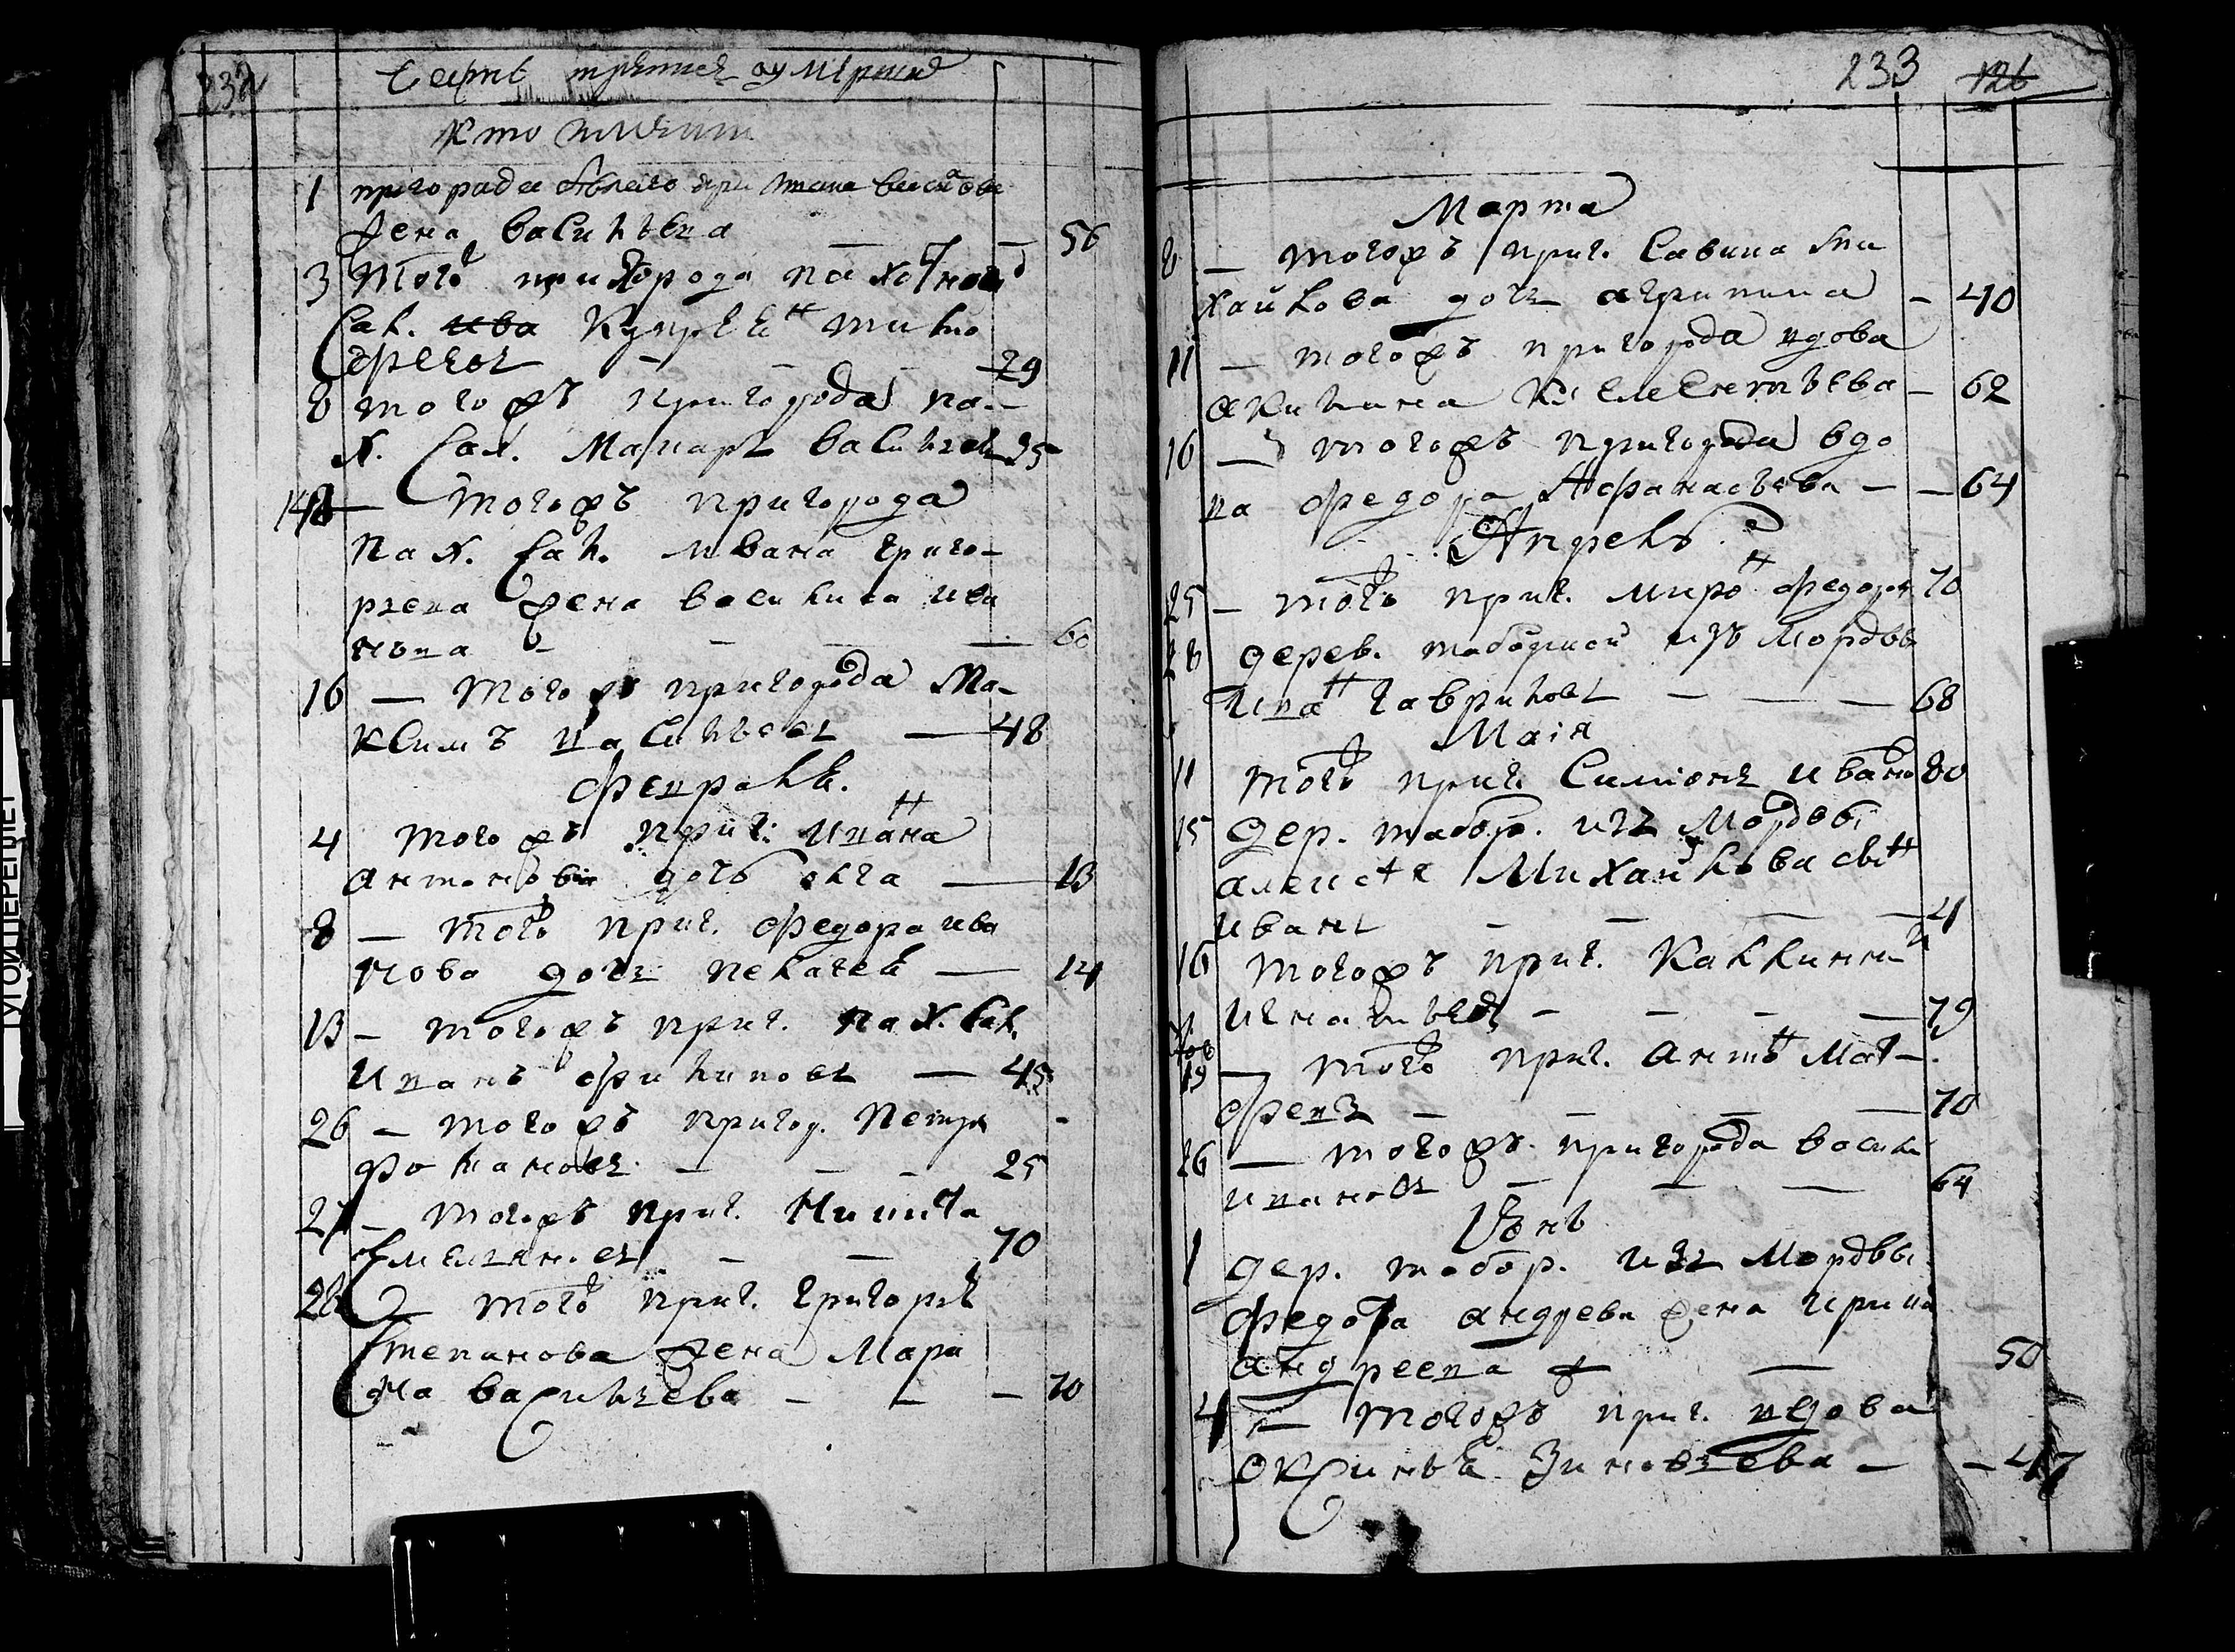 232
Часть третия оумершия
Кто имянно
1 пригорода Белаго
жена Васильева — — 56
3 Тогож пригорода пахотной
Сал. Купреян Тимо
феевъ — — 29
8 тогожъ пригорода па-
х. Сал. Макаръ Васильевъ 35
14 — Тогожъ пригорода
пах. Сал. Ивана Григо-
рьева жена Василиса Ива
нова — — — 60
16 — Тогожъ пригорода Ма-
ксимъ Васильевъ — 48
Февраль.
4 тогожъ приг: Ивана
Антонова дочь Олга — 13
8 — тогожъ приг. Федора Ива
нова дочь Пелагея — 14
13 — тогожъ приг. пах. Сал.
Иванъ Филиповъ — 45
26 — тогожъ пригор. Петръ
— — — 25
27 — тогожъ приг. Никита
Емельяновъ — — 70
28 — тогожъ приг. Григорья
Степанова жена Мари
на Васильева — — — 70
233 126
Марта
8 — тогожъ приг. Савина Ми
хайлова дочь Агрипина — 40
11 — тогожъ пригорода вдова
Акилина Клементьева — 62
16 — тогожъ пригорода вдо
ва Федора Афанасьева — — 64
Апрель
25 — тогожъ приг. Миронъ Федоровъ 70
28 дерев. таборной изъ Мордвы
Иванъ Гавриловъ — — — 68
Маія
11 тогожъ приг. Симіонъ Ивановъ 80
15 дер. табор. изъ Мордвы
Алексея Михайлова сынъ
Иванъ — — — — 4
16 тогожъ приг. Калинникъ
Игнатьевъ — — — — 79
19 — тогожъ приг. Антонъ Мат-
феевъ — — — — 70
26 — тогожъ пригорода Василей
Ивановъ — — — 64
Іюнь
1 дер. табор. изъ Мордвы
Федота Андреева жена Ирина
Андреева — — 50
4 — тогожъ приг. вдова
Оксинья Зиновьева — — 47